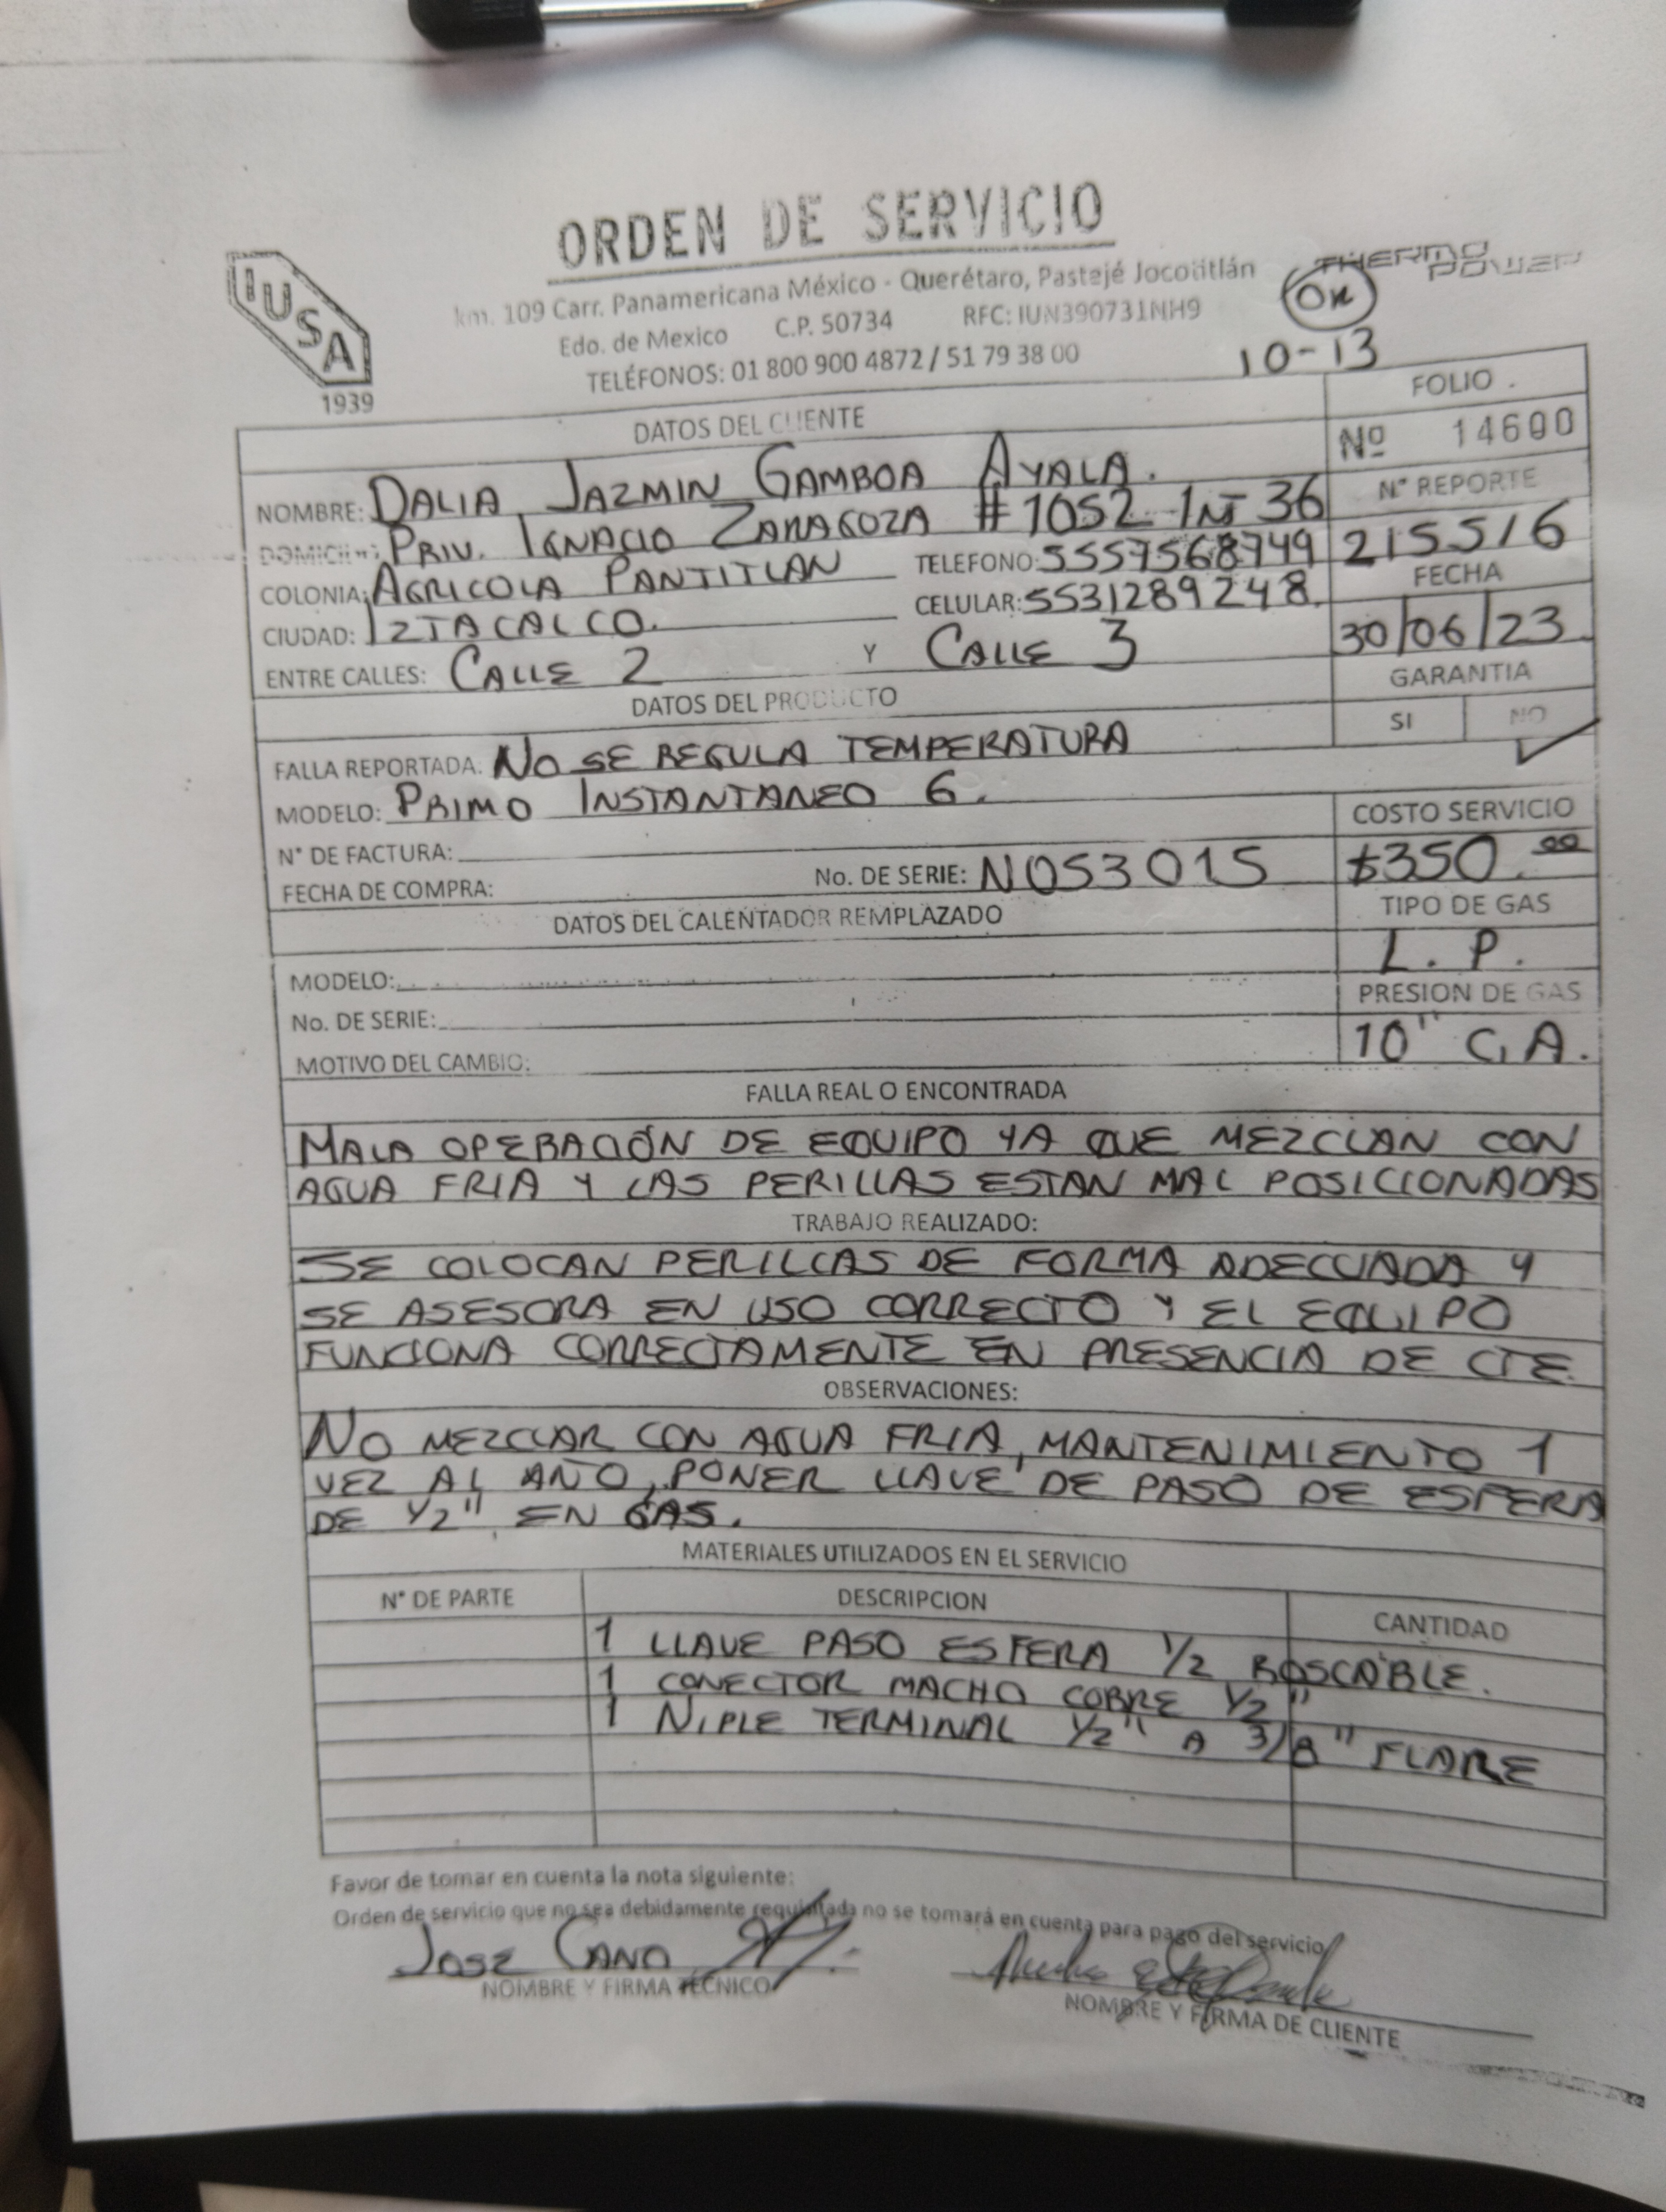 ORDEN DE SERVICIO
IUSA
1939
THERMO
POWER
km. 109 Carr. Panamericana México - Querétaro, Pastejé Jocotitlán
OK
Edo. de Mexico C.P. 50734 RFC: IUN390731NH9
TELÉFONOS: 01 800 900 4872 / 51 79 38 00
10-13
DATOS DEL CLIENTE
FOLIO
Nº 14600
NOMBRE: DALIA JAZMIN GAMBOA AYALA.
N° REPORTE
DOMICILIO: PRIV. IGNACIO ZARAGOZA #1052 INT 36
215516
COLONIA: AGRICOLA PANTITLAN TELEFONO: 5557568749
FECHA
CIUDAD: IZTACALCO. CELULAR: 5531289248.
30/06/23
ENTRE CALLES: CALLE 2 Y CALLE 3
GARANTIA
DATOS DEL PRODUCTO
SI NO
FALLA REPORTADA: NO SE REGULA TEMPERATURA
MODELO: PRIMO INSTANTANEO 6.
COSTO SERVICIO
N° DE FACTURA:
$350.00
FECHA DE COMPRA: No. DE SERIE: N053015
TIPO DE GAS
DATOS DEL CALENTADOR REMPLAZADO
L. P.
MODELO:
PRESION DE GAS
No. DE SERIE:
10" C.A.
MOTIVO DEL CAMBIO:
FALLA REAL O ENCONTRADA
MALA OPERACIÓN DE EQUIPO YA QUE MEZCLAN CON
AGUA FRIA Y LAS PERILLAS ESTAN MAL POSICIONADAS
TRABAJO REALIZADO:
SE COLOCAN PERILLAS DE FORMA ADECUADA Y
SE ASESORA EN USO CORRECTO Y EL EQUIPO
FUNCIONA CORRECTAMENTE EN PRESENCIA DE CTE.
OBSERVACIONES:
NO MEZCLAR CON AGUA FRIA, MANTENIMIENTO 1
VEZ AL AÑO, PONER LLAVE DE PASO DE ESFERA
DE 1/2" EN GAS.
MATERIALES UTILIZADOS EN EL SERVICIO
N° DE PARTE DESCRIPCION CANTIDAD
1 LLAVE PASO ESFERA 1/2 ROSCABLE.
1 CONECTOR MACHO COBRE 1/2"
1 NIPLE TERMINAL 1/2" A 3/8" FLARE
Favor de tomar en cuenta la nota siguiente:
Orden de servicio que no sea debidamente requisitada no se tomará en cuenta para pago del servicio
JOSE CANO
NOMBRE Y FIRMA TÉCNICO
NOMBRE Y FIRMA DE CLIENTE